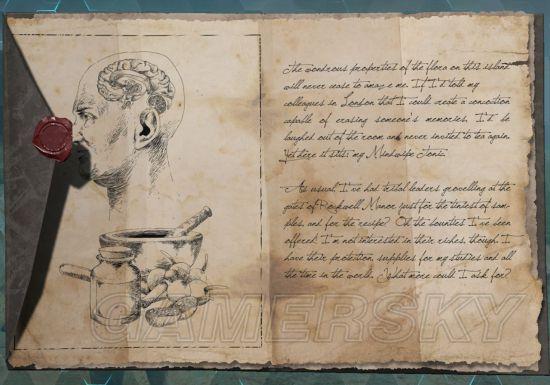 The wondrous properties of the flora on this island
will never cease to amaze me. If I'd told my
colleagues in London that I could create a concoction
capable of erasing someone's memories, I'd be
laughed out of the room and never invited to tea again.
Yet here it sits: my Mindwipe Tonic.
As usual, I've had tribal leaders grovelling at the
gates of Rockwell Manor just for the tiniest of sam-
ples, and for the recipe? Oh the bounties I've seen
offered. I'm not interested in their riches, though. I
have their protection, supplies for my studies and all
the time in the world. What more could I ask for?
GAMERSKY